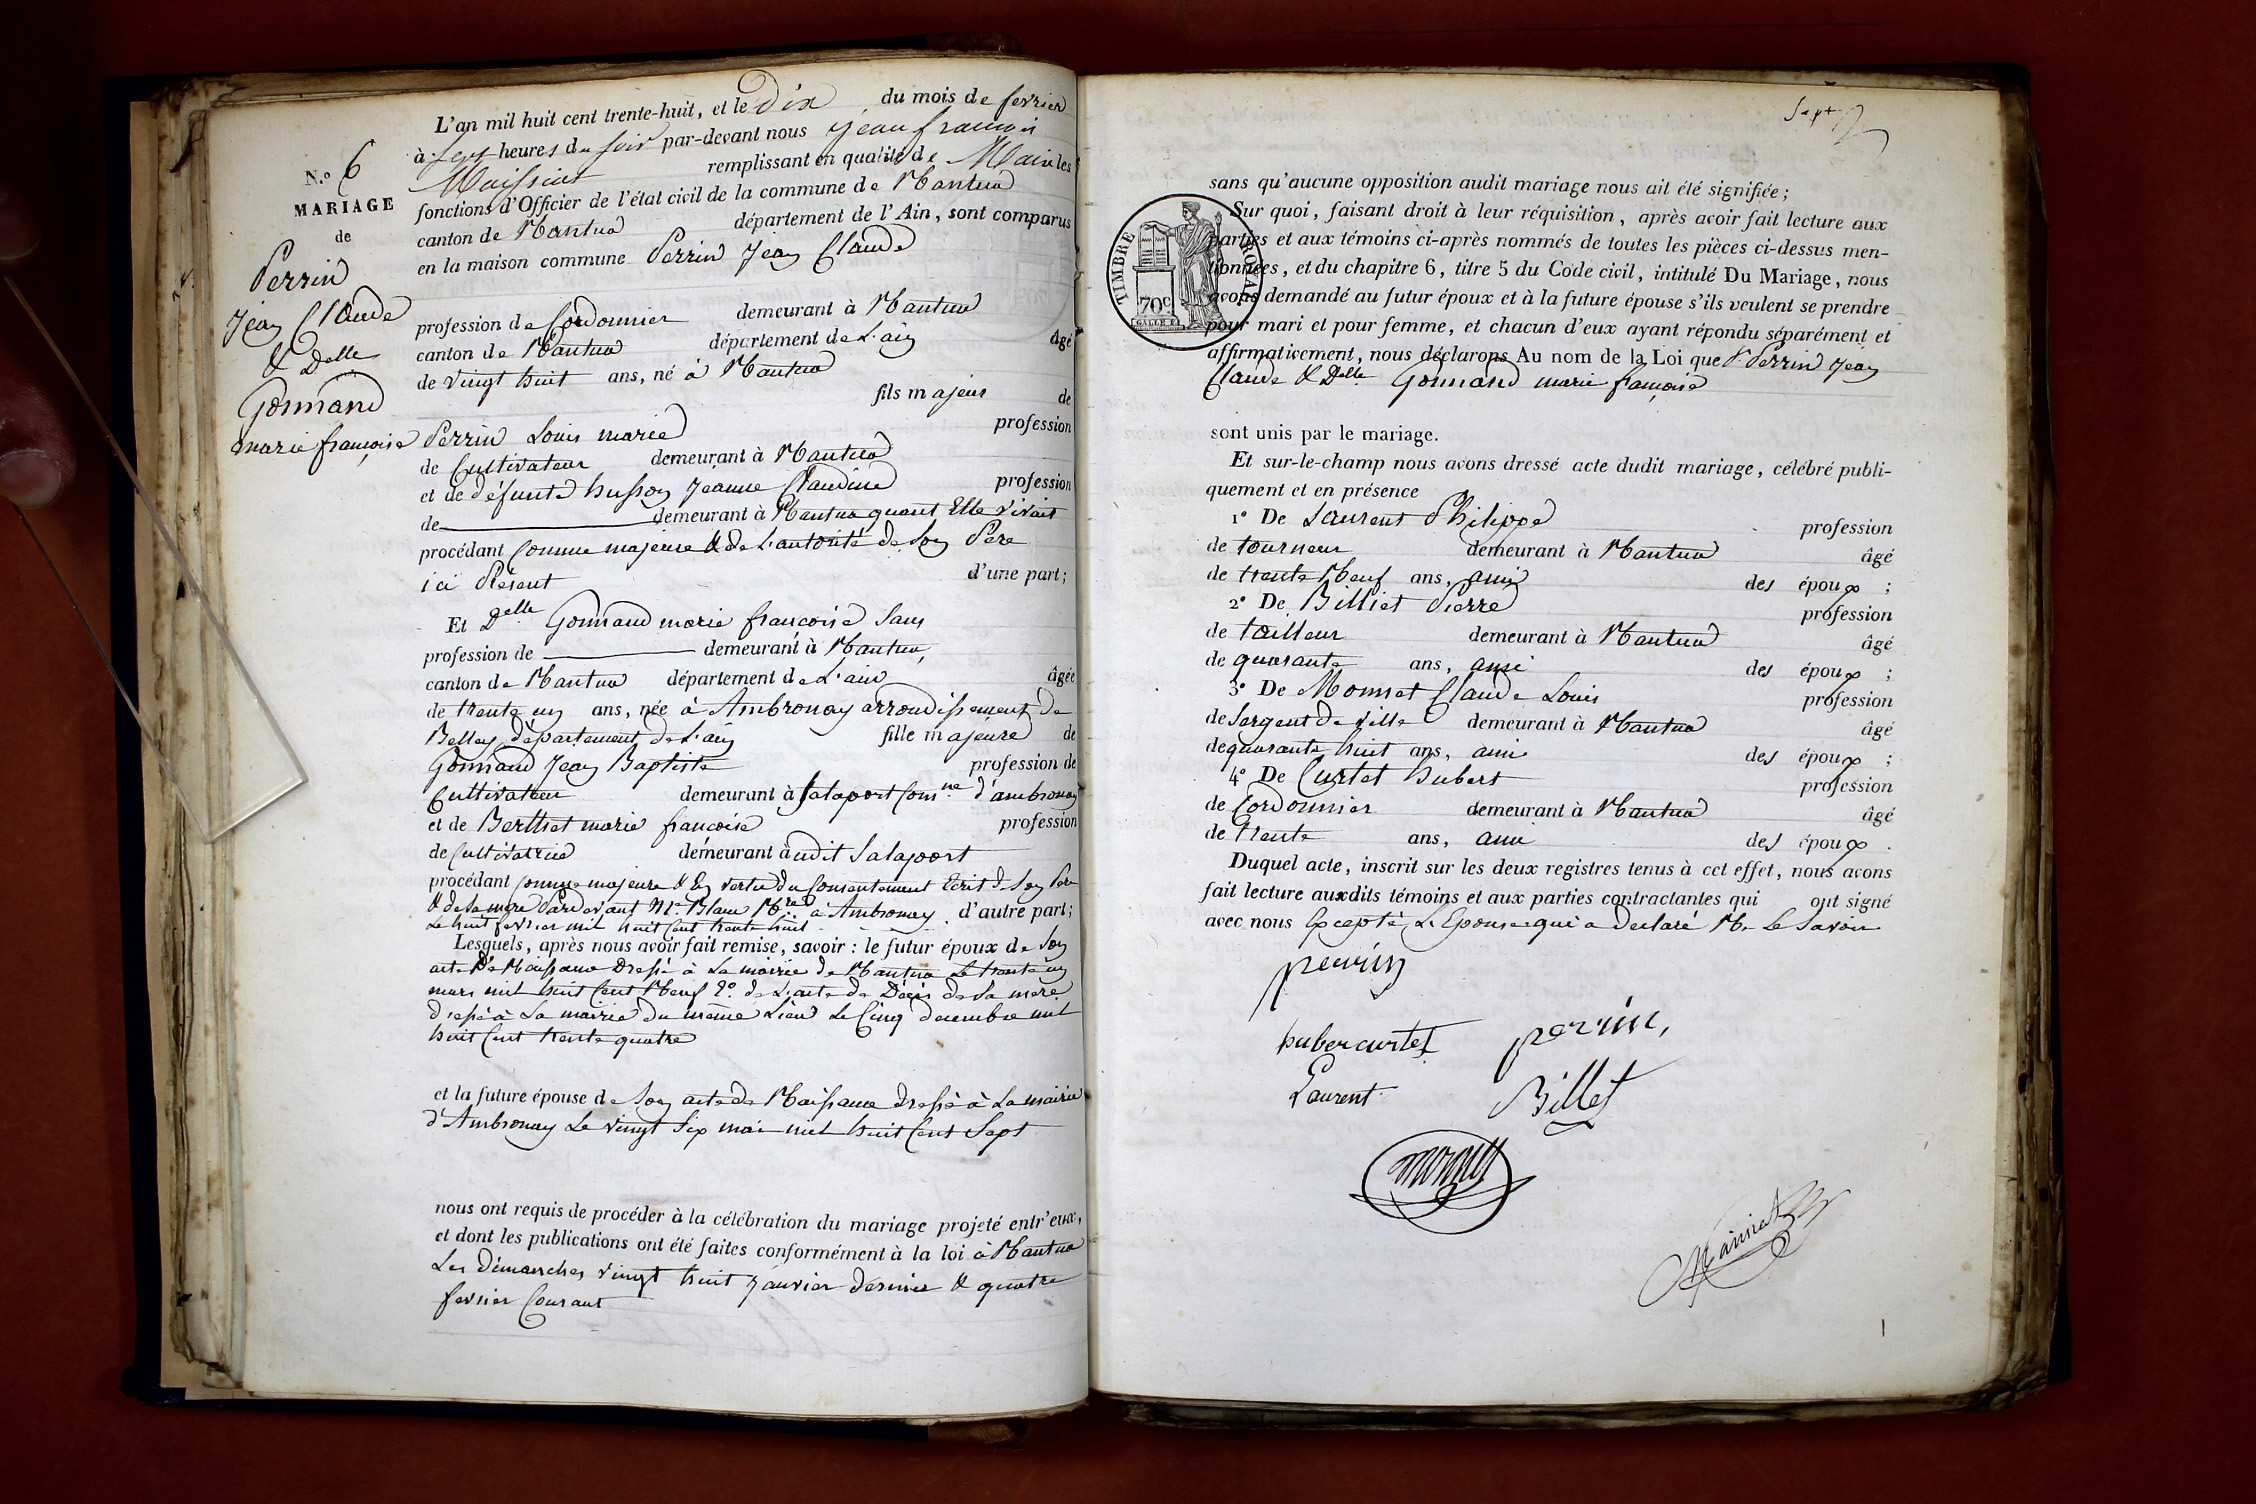 N.° 6
MARIAGE
de
Perrin
Jean Claude
& Delle
Gonnand
marie françoise
L'an mil huit cent trente-huit, et le Dix du mois de fevrier
à Sept heures du soir par-devant nous jean francois
Maissiat remplissant en qualité de Maire les
fonctions d'Officier de l'état civil de la commune de Nantua
canton de Nantua département de l'Ain, sont comparus
en la maison commune Perrin Jean Claude
profession de Cordonnier demeurant à Nantua
canton de Nantua département de L'ain âgé
de vingt huit ans, né à Nantua
fils majeur de
Perrin Louis marie profession
de Cultivateur demeurant à Nantua
et de défunte husson Jeanne Claudine profession
de demeurant à Nantua quant Elle vivait
procédant Comme majeure & de L'autorité de Son Pere
ici Présent d'une part;
Et Delle Gonnand marie francoise Sans
profession de demeurant à Nantua,
canton de Nantua département de L'ain âgée
de trente un ans, née à Ambronay arrondissement de
Belley département de L'ain fille majeure de
Gonnand Jean Baptiste profession de
Cultivateur demeurant à Salaport Comne d'ambronay
et de Berthet marie francoise profession
de Cultivatrice demeurant audit Salaport
procédant comme majeure & En vertu du Consentement Ecrit de Son Pere
& de Sa mere Pardevant Me. Blanc Nre à Ambronay d'autre part;
Le huit fevrier mil huit Cent trente huit
Lesquels, après nous avoir fait remise, savoir : le futur époux de Son
acte De Naissance Dressé à La mairie de Nantua Le trente un
mars mil huit Cent Neuf 2° de L'acte de Décès de Sa mere
dressé à La mairie du même Lieu Le Cinq decembre mil
huit Cent trente quatre
et la future épouse de Son acte de Naissance dressé à La mairie
d'Ambronay Le vingt Six mai mil huit Cent Sept
nous ont requis de procéder à la célébration du mariage projeté entr'eux,
et dont les publications ont été faites conformément à la loi à Nantua
Les dimanches vingt huit janvier dernier & quatre
fevrier Courant
Sept
TIMBRE ROYAL
70c
sans qu'aucune opposition audit mariage nous ait été signifiée;
Sur quoi, faisant droit à leur réquisition, après avoir fait lecture aux
parties et aux témoins ci-après nommés de toutes les pièces ci-dessus men-
tionnées, et du chapitre 6, titre 5 du Code civil, intitulé Du Mariage, nous
avons demandé au futur époux et à la future épouse s'ils veulent se prendre
pour mari et pour femme, et chacun d'eux ayant répondu séparément et
affirmativement, nous déclarons Au nom de la Loi que Sr. Perrin Jean
Claude & Delle Gonnand marie françoise
sont unis par le mariage.
Et sur-le-champ nous avons dressé acte dudit mariage, célébré publi-
quement et en présence
1° De Laurent Philippe profession
de tourneur demeurant à Nantua âgé
de trente Neuf ans, ami des époux ;
2° De Billiet Pierre profession
de tailleur demeurant à Nantua âgé
de quarante ans, ami des époux ;
3° De Monnet Claude Louis profession
de Sergent de ville demeurant à Nantua âgé
de quarante huit ans, ami des époux ;
4° De Curtet hubert profession
de Cordonnier demeurant à Nantua âgé
de trente ans, ami des époux .
Duquel acte, inscrit sur les deux registres tenus à cet effet, nous avons
fait lecture auxdits témoins et aux parties contractantes qui ont signé
avec nous Excepté L'Epouse qui a declaré Ne Le Savoir
perrin
huber curtet perrin,
Laurent Billet
monnet
Maissiat